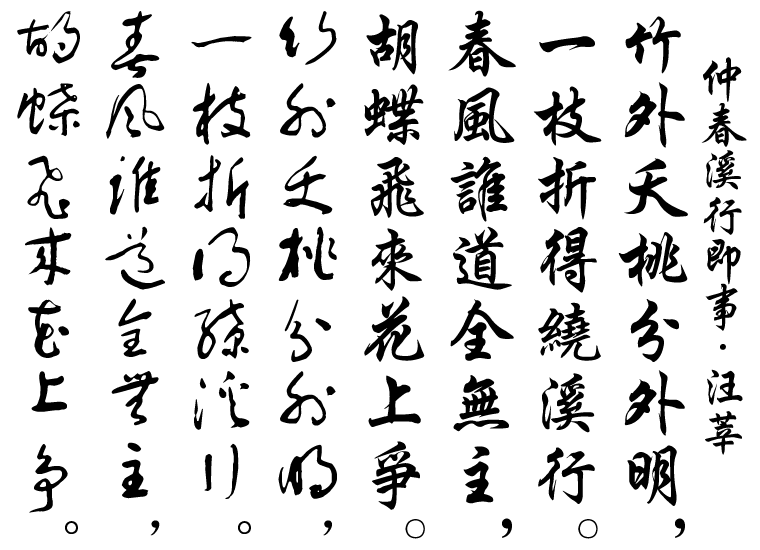 仲春溪行即事·汪莘
竹外夭桃分外明，
一枝折得繞溪行。
春風誰道全無主，
胡蝶飛來花上爭。
竹外夭桃分外明，
一枝折得繞溪行。
春風誰道全無主，
胡蝶飛來花上爭。